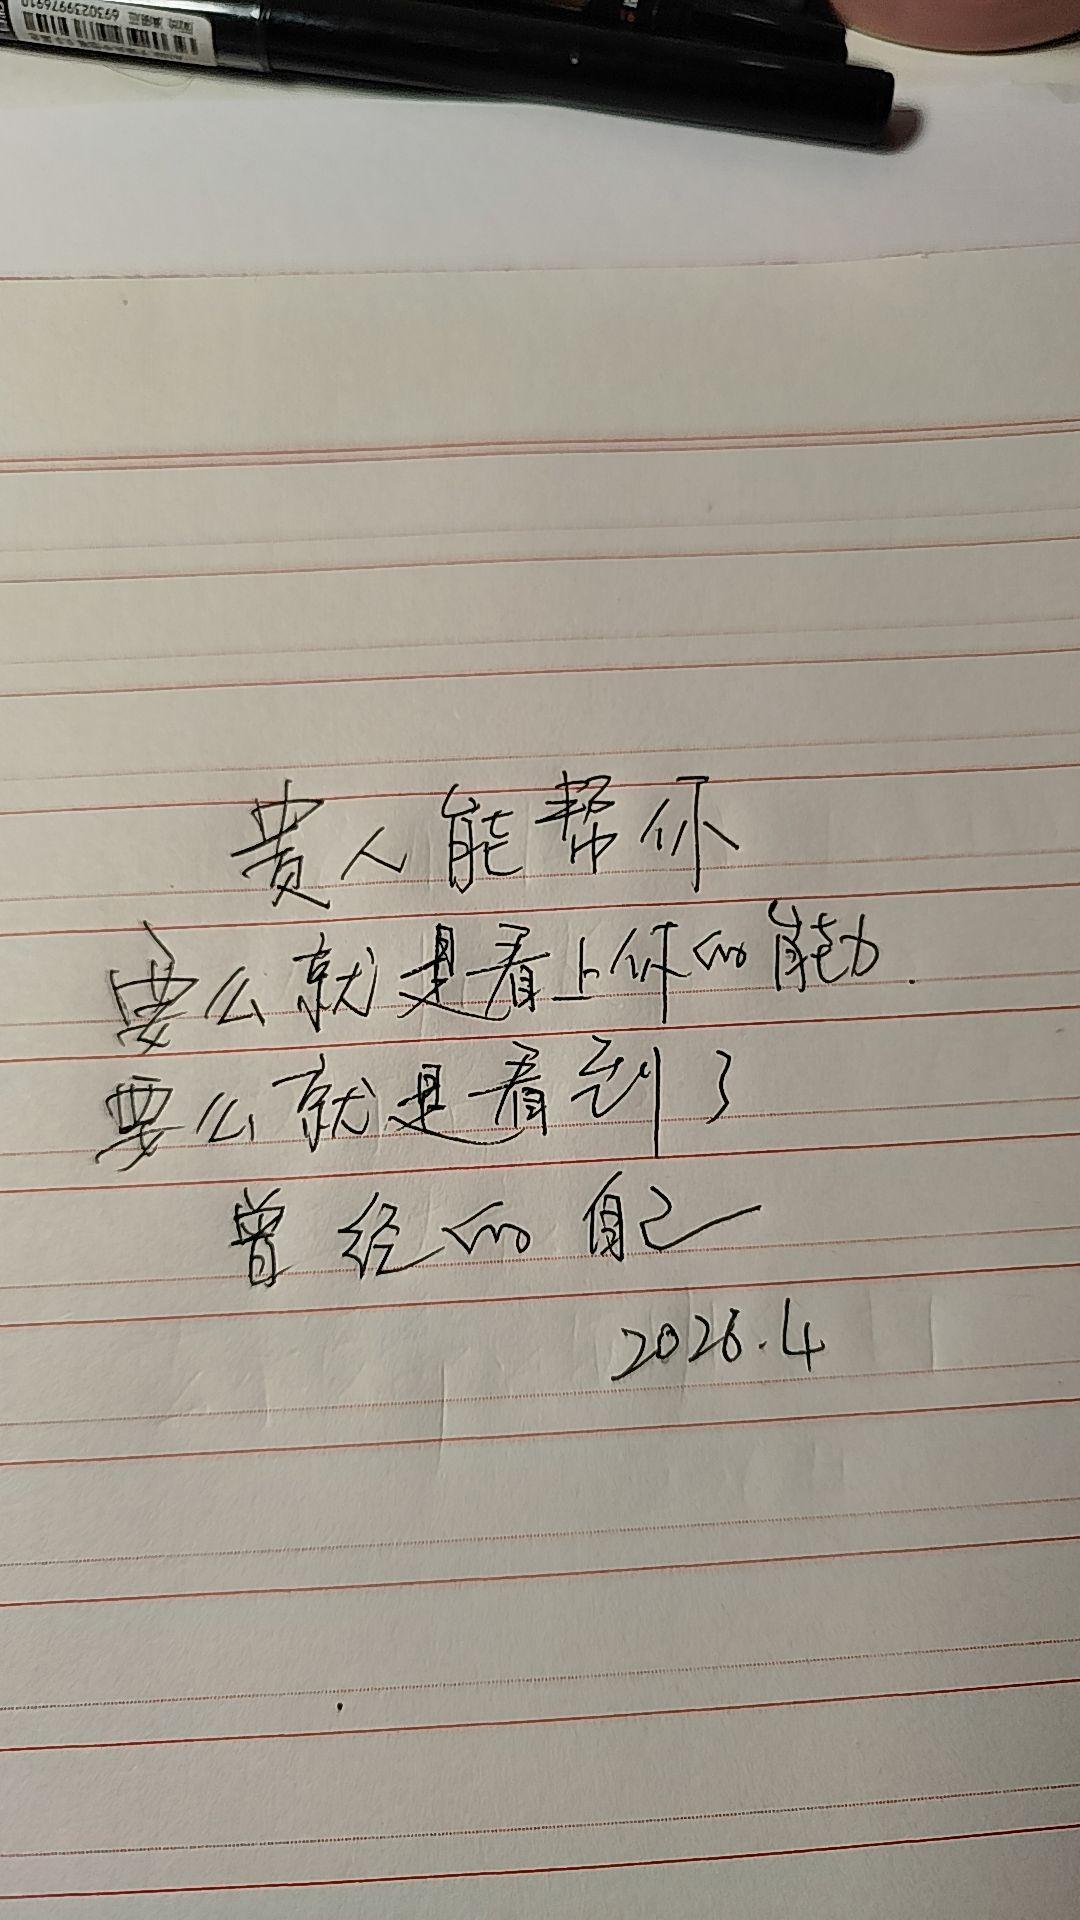 6930239976910
贵人能帮你
要么就是看上你的能力.
要么就是看到了
曾经的自己
2026.4